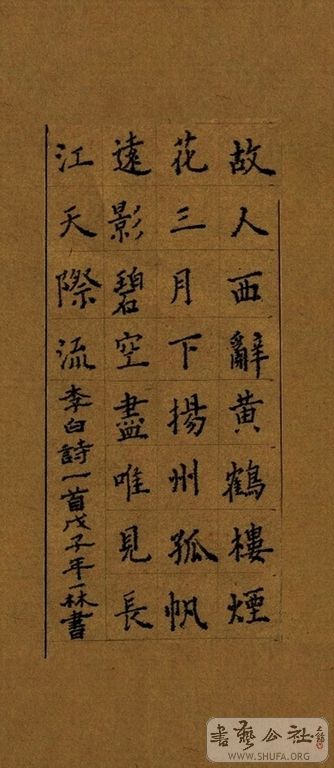 故人西辭黃鶴樓煙
花三月下揚州孤帆
遠影碧空盡唯見長
江天際流李白詩一首戊子年一林書
書藝公社
WWW.SHUFA.ORG